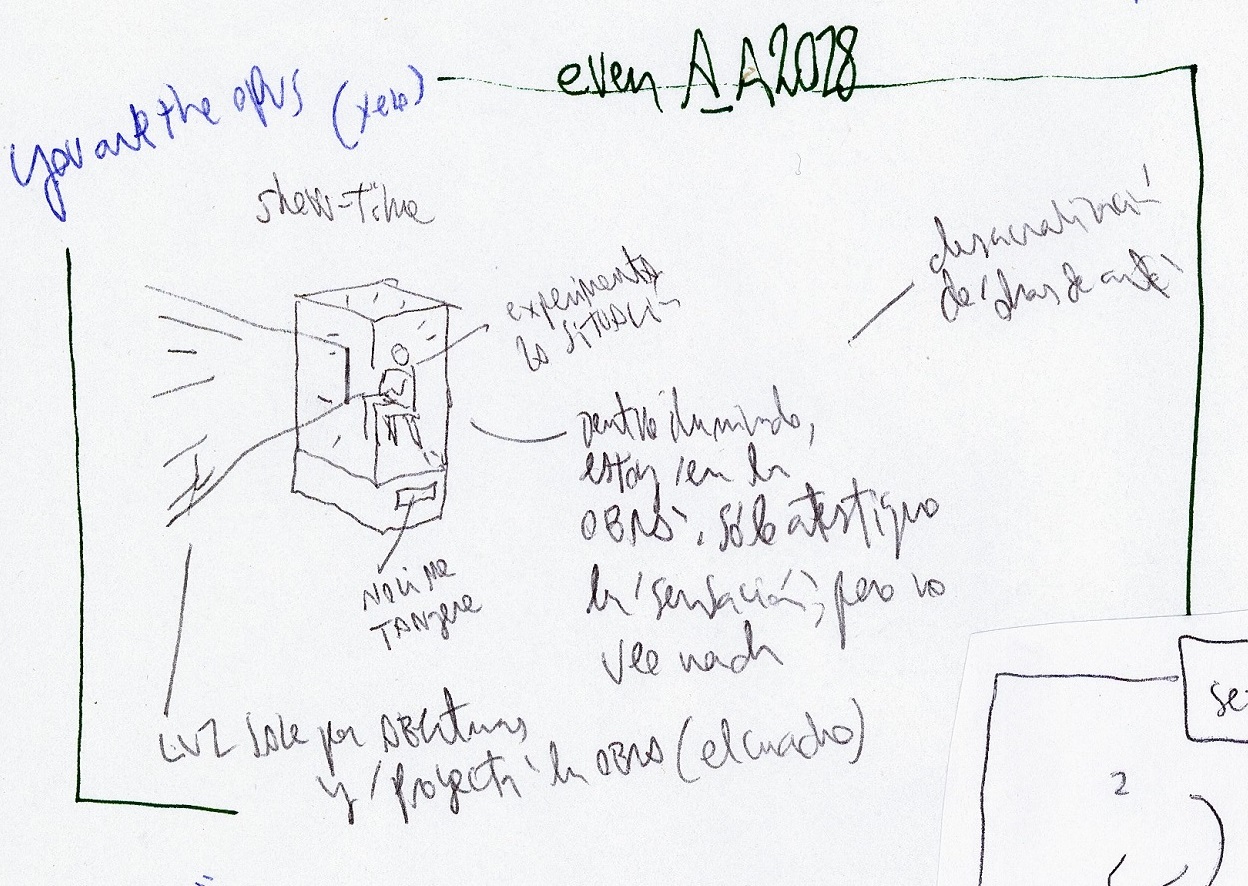 even A A2018
you are the opus (xeno)
show-time
experimenta
la SITUACIÓN
desacralización
de 'obras de arte'
Dentro iluminado,
estoy 'en la
OBRA'. Sólo atestiguo
la 'sensación', pero no
vee nada
NOLI ME
TANGERE
LUZ SALE por ABERTURAS
y 'proyecta' la OBRA (el cuadro)
2